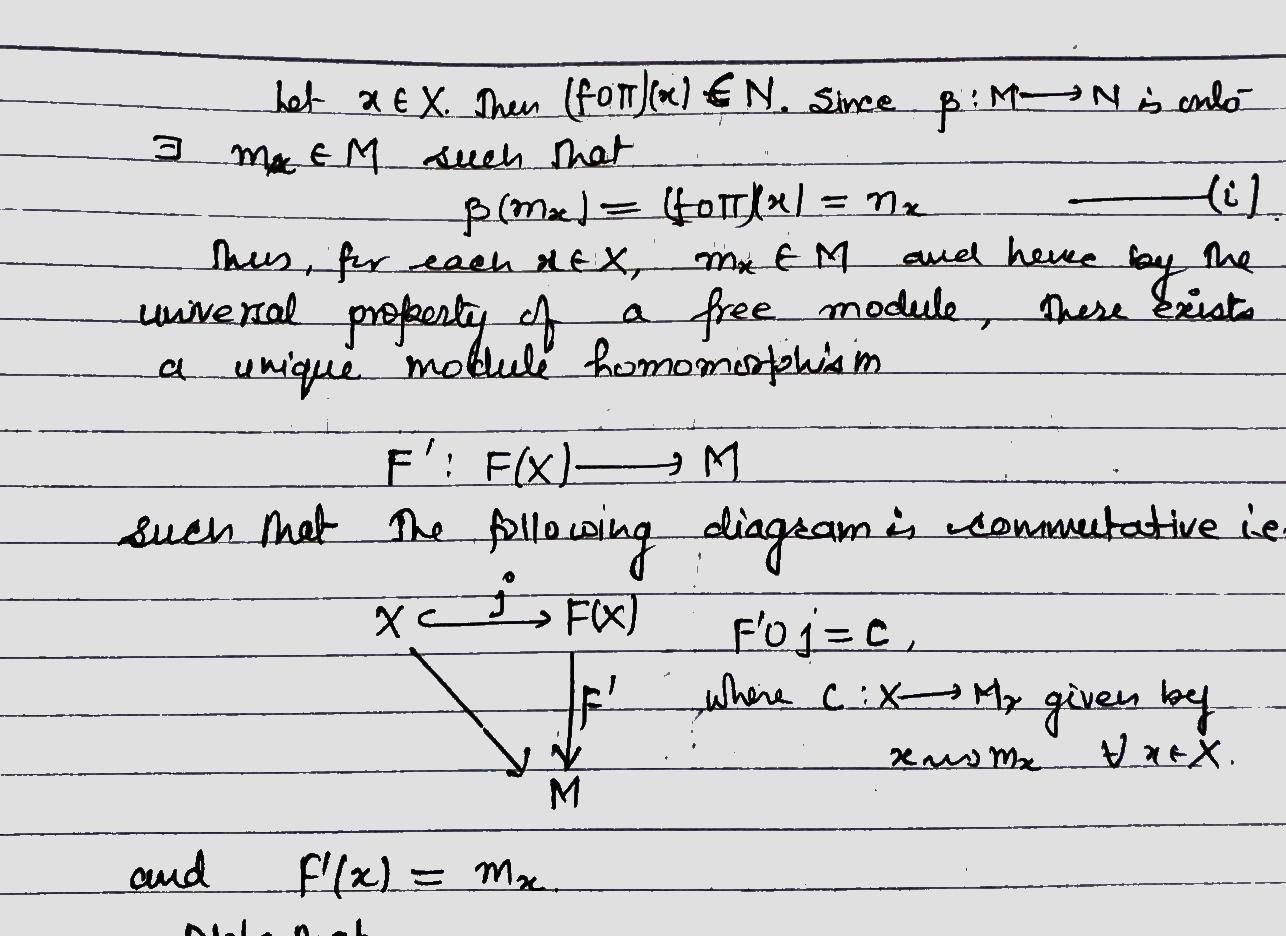 Let x ∈ X. Then (foπ)(x) ∈ N. Since β : M ⟶ N is onto
∃ mₓ ∈ M such that
β(mₓ) = (foπ)(x) = nₓ ——— (i)
Thus, for each x ∈ X, mₓ ∈ M and hence by the
universal property of a free module, there exists
a unique module homomorphism
F' : F(X) ⟶ M
such that the following diagram is commutative i.e.
X j F(X)
F'o j = C,
F'
where C : X ⟶ Mₓ given by
x ⇝ mₓ ∀ x ∈ X.
M
and F'(x) = mₓ.